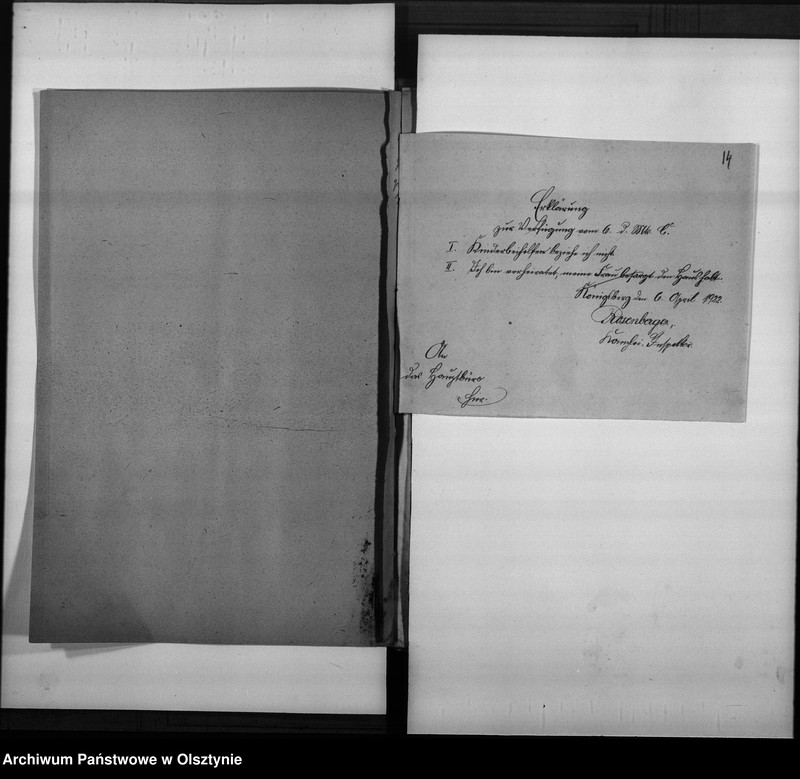 14
Erklärung
zur Verfügung vom 6. d. Mts.
I. Kinderbeihilfen beziehe ich nicht
II. Ich bin verheiratet, meine Frau besorgt den Haushalt.
Königsberg den 6. April 1922.
Rosenberger,
Kanzlei-Inspektor.
An
das Hauptbüro
hier.
Archiwum Państwowe w Olsztynie